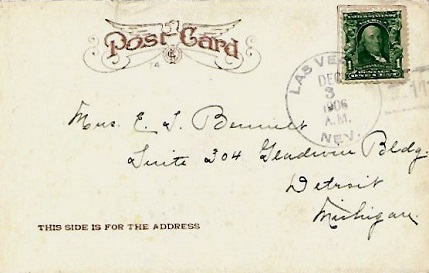 Post Card
LAS VE
DEC
3
1906
A.M.
NEV.
Mrs. E. L. Bennett
Suite 304 Gladwin Bldg.
Detroit
Michigan.
THIS SIDE IS FOR THE ADDRESS